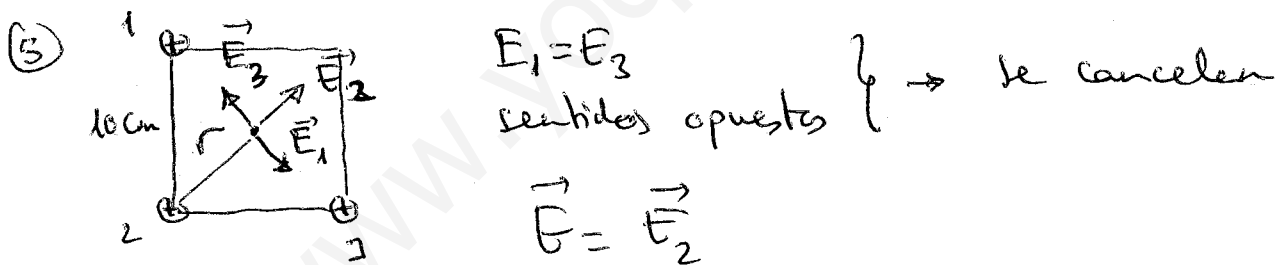 5
1
E₃
E₂
10 cm
r
E₁
2
3
E₁ = E₃
sentidos opuestos } → se cancelan
E = E₂